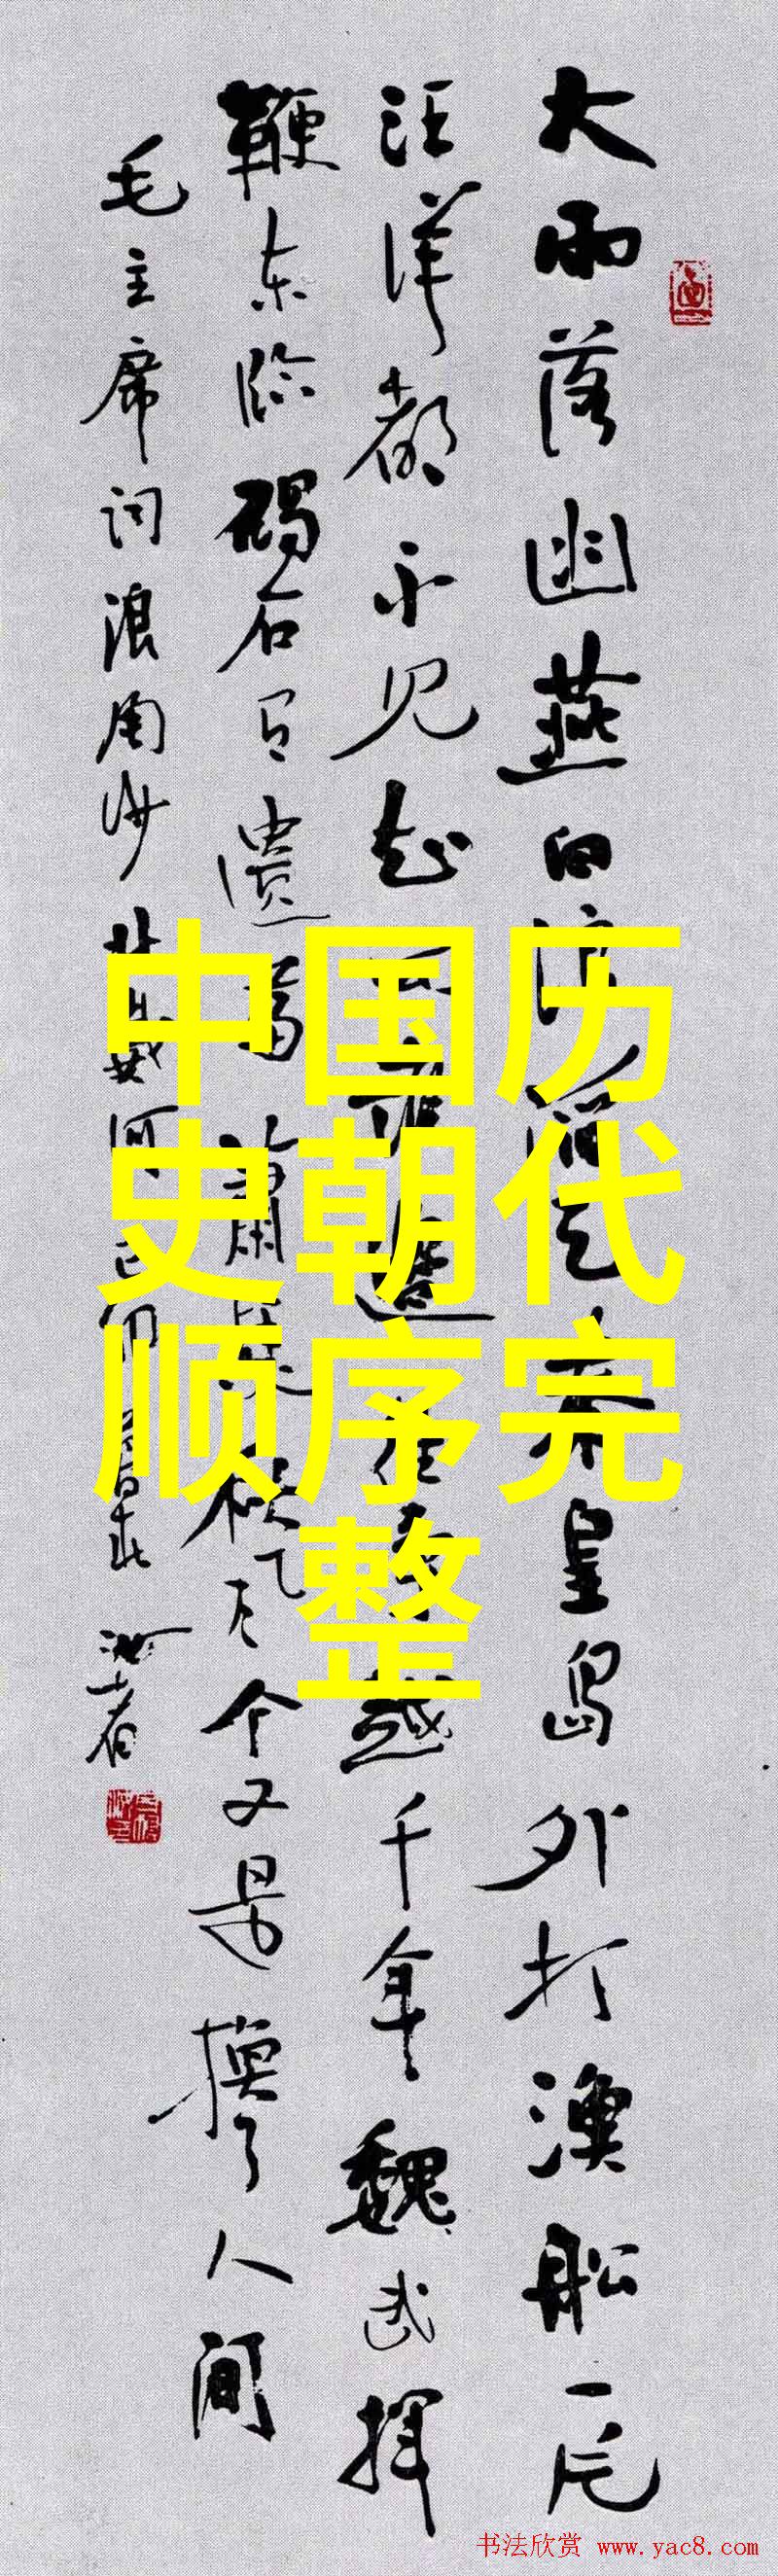 大雨落幽燕白浪滔天秦皇岛外打渔船一片
汪洋都不见知向谁邊往事越千年魏武挥
鞭东临碣石有遗篇萧瑟秋风今又是换了人间
毛主席词浪淘沙北戴河己卯春
中国历
史朝代
顺序完
整
书法欣赏 www.yac8.com